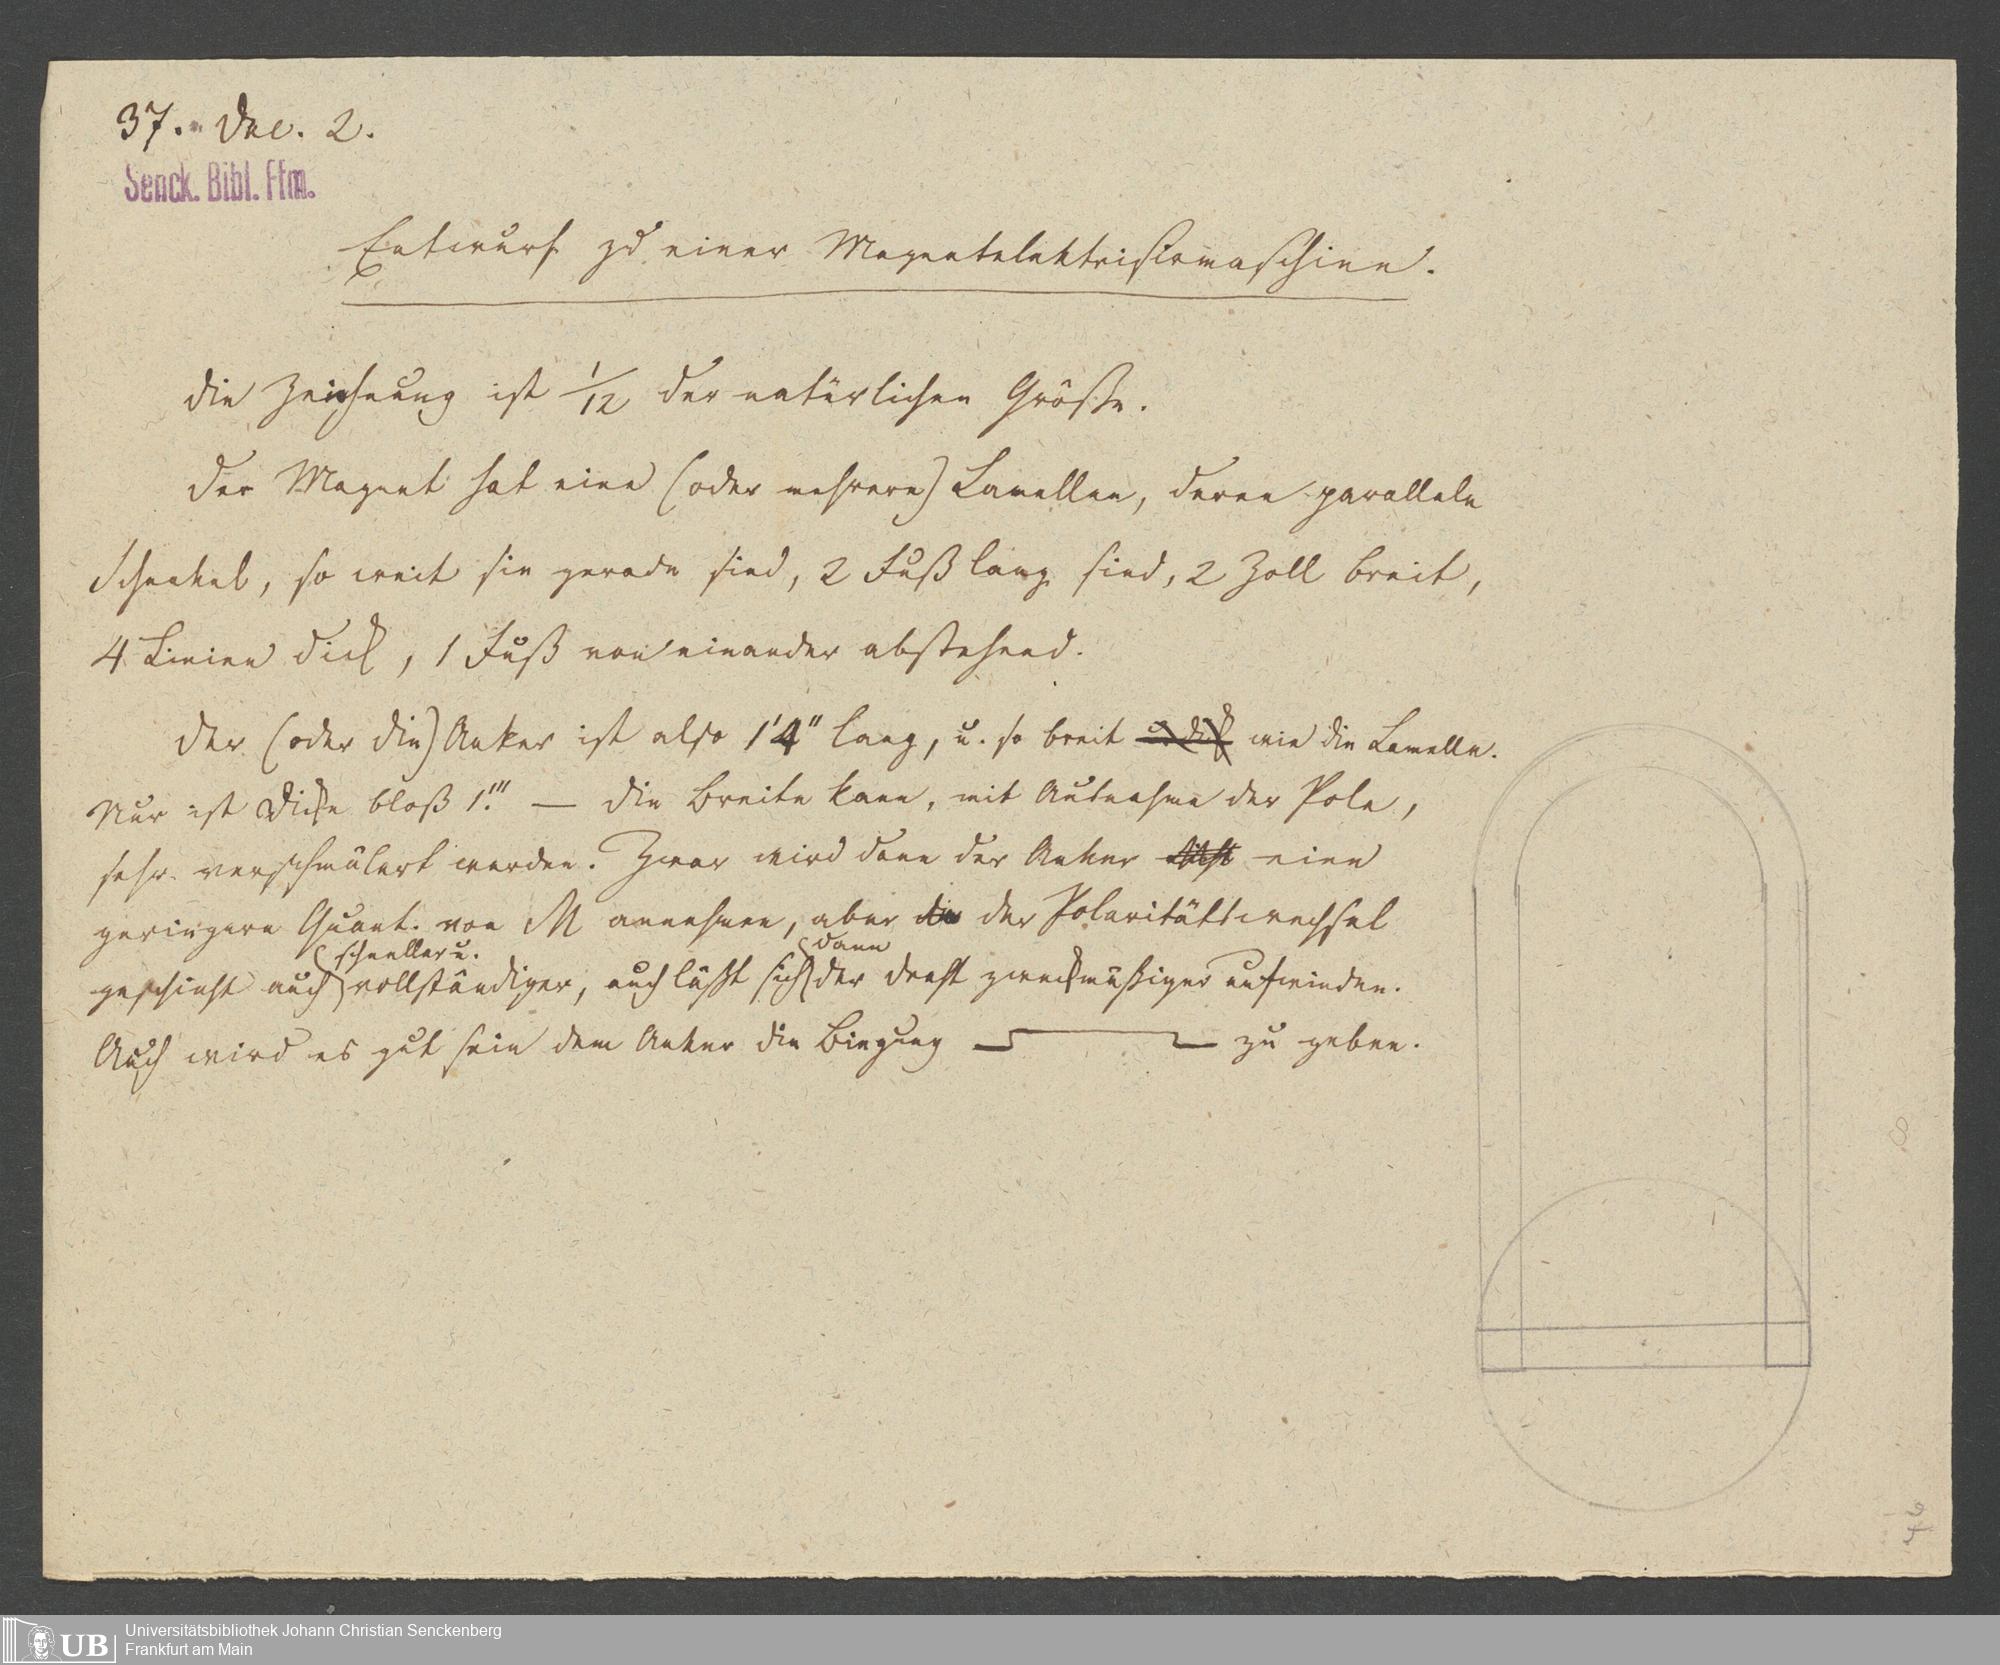 37. Dec. 2.
Senck. Bibl. Ffm.
Entwurf zu einer Magnetelektrisirmaschine.
Die Zeichnung ist 1/12 der natürlichen Größe.
Der Magnet hat eine (oder mehrere) Lamellen, deren parallele
Schenkel, so weit sie gerade sind, 2 Fuß lang sind, 2 Zoll breit,
4 Linien dick, 1 Fuß von einander abstehend.
Der (oder die) Anker ist also 1'4" lang, u. so breit u. dick wie die Lamelle.
Nur ist Dicke bloß 1."' — Die Breite kann, mit Ausnahme der Pole,
sehr verschmälert werden. Zwar wird dann der Anker eine
geringere Quant. von M annehmen, aber der Polaritätswechsel
schneller u. dann
geschieht auch vollständiger, auch läßt sich der Draht zweckmäßiger aufwinden.
Auch wird es gut sein dem Anker die Biegung zu geben.
8
UB
Universitätsbibliothek Johann Christian Senckenberg
Frankfurt am Main